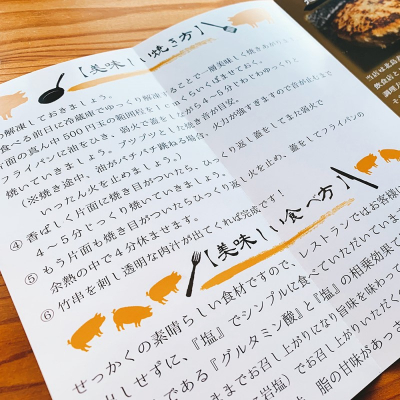 【美味しい焼き方】
の解凍しておきましょう。
食べる前日に冷蔵庫でゆっくり解凍することで一層美味しく焼きあがり
片面の真ん中500円玉の範囲
フライパンに油をひき、弱火で蓋を
焼いていきましょう。プツプツとした焼き音が目安。
(※焼き途中、油がパチパチ跳ねる場合、火力が強すぎますので音が出るまで
いったん火を止めましょう)
④ 香ばしく片面に焼き目がついたら、ひっくり返し蓋をしてまた弱火で
4〜5分じっくり焼いていきましょう。
⑤ もう片面も焼き目がついたらひっくり返し火を止め、蓋をしてフライパンの
余熱の中で4分休ませます。
⑥ 竹串を刺し透明な肉汁が出てくれば完成です!
【美味しい食べ方】
せっかくの素晴らしい食材ですので、
レストランではお客様に
出しせずに、『塩』でシンプルに食べていただいています
である『グルタミン酸』と『塩』の相乗効果で
ままでお召し上がりになり旨味を味わって
に岩塩)でお召し上がりいただく
脂の甘味があっさ
当店は北島
飲食店と
調理人